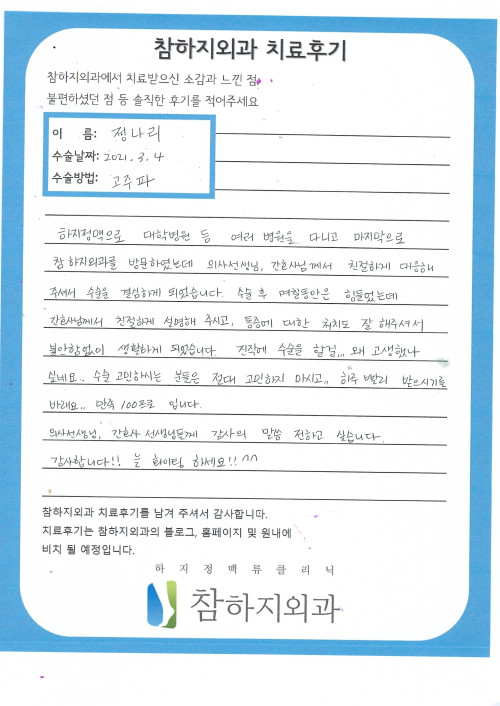 참하지외과 치료후기
참하지외과에서 치료받으신 소감과 느낀 점,
불편하셨던 점 등 솔직한 후기를 적어주세요
이 름: 정나리
수술날짜: 2021. 3. 4
수술방법: 고주파
하지정맥으로 대학병원 등 여러 병원을 다니고 마지막으로
참 하지외과를 방문하였는데 의사선생님, 간호사님께서 친절하게 대응해
주셔서 수술을 결심하게 되었습니다. 수술 후 며칠동안은 힘들었는데
간호사님께서 친절하게 설명해 주시고, 통증에 대한 처치도 잘 해주셔서
불안함없이 생활하게 되었습니다. 진작에 수술을 할걸,,, 왜 고생했나
싶네요.. 수술 고민하시는 분들은 절대 고민하지 마시고.. 하루 빨리 받으시기를
바래요.. 만족 100프로 입니다.
의사선생님, 간호사 선생님들께 감사의 말씀 전하고 싶습니다.
감사합니다!! 늘 화이팅 하세요!! ^^
참하지외과 치료후기를 남겨 주셔서 감사합니다.
치료후기는 참하지외과의 블로그, 홈페이지 및 원내에
비치 될 예정입니다.
하 지 정 맥 류 클 리 닉
참하지외과